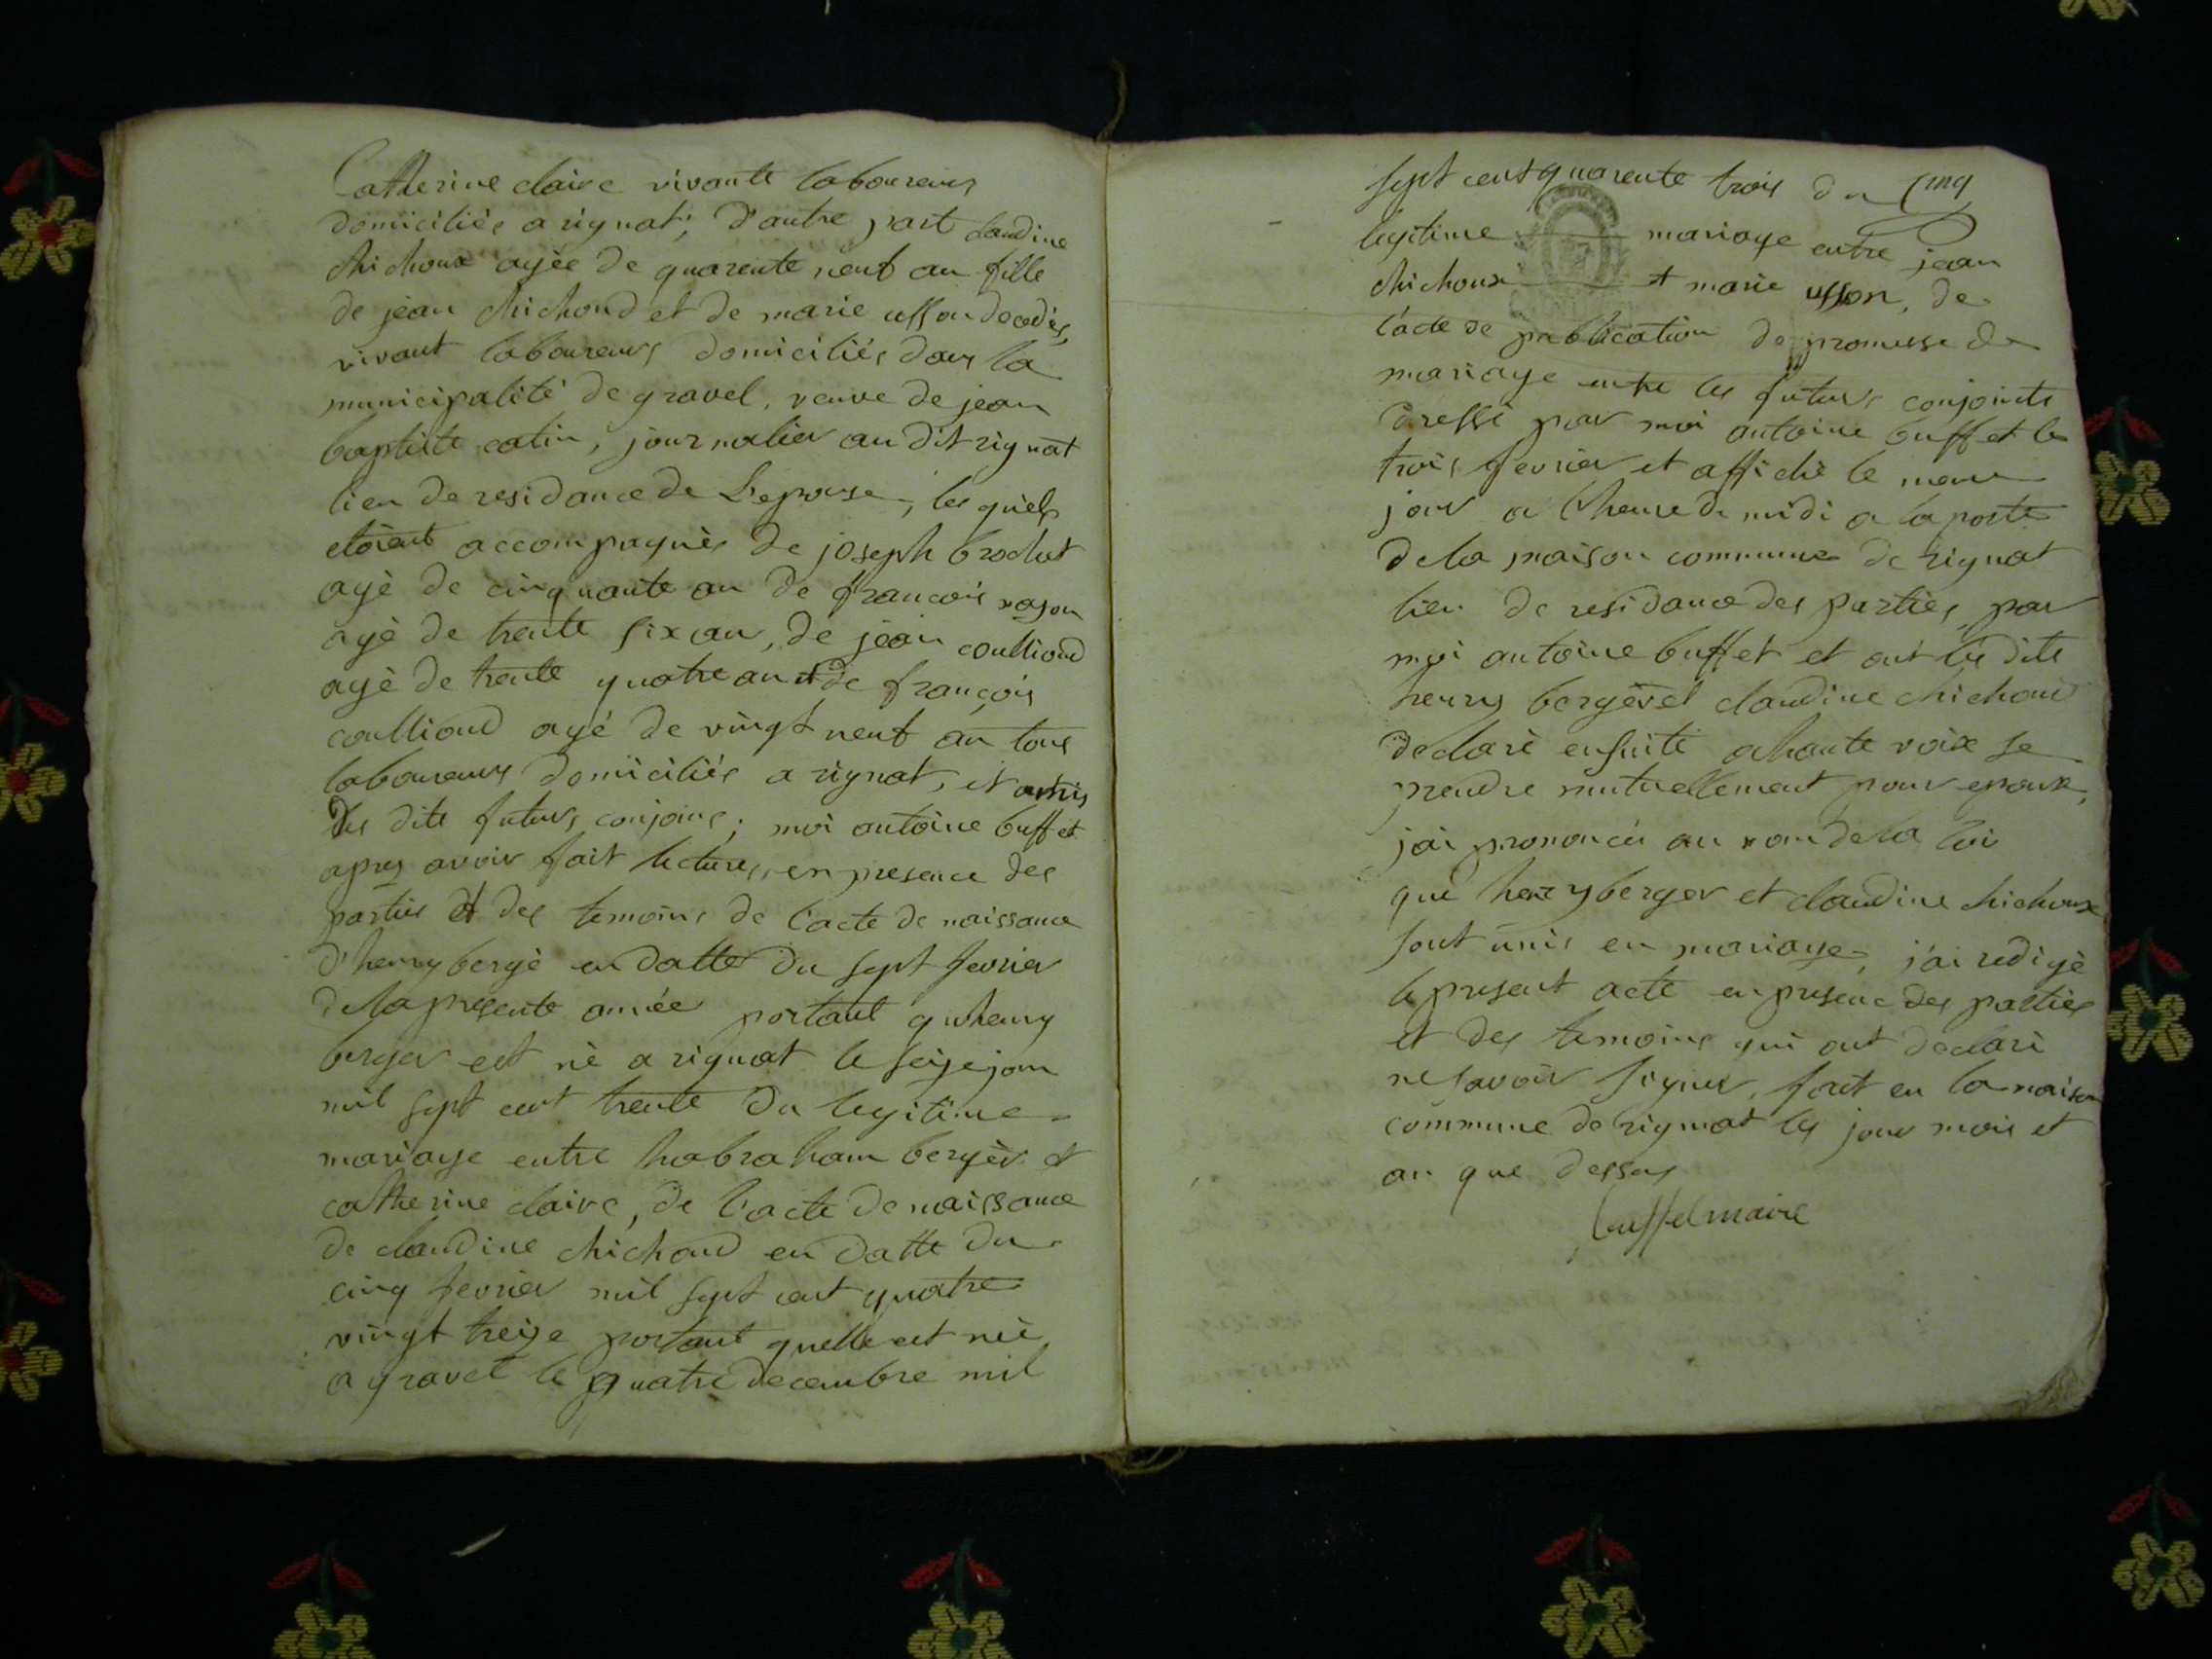 Catherine claire vivante laboureurs
domiciliés a rignat; d'autre part claudine
chichoux agée de quarente neuf an fille
de jean chichoud et de marie usson decedés,
vivant laboureurs domiciliés dans la
municipalité de gravel, veuve de jean
baptiste catin, journalier au dit rignat
lieu de residance de L'epouse, les quels
etoient accompagnés de joseph brochut
agé de cinquante an de francois
agé de trente six an, de jean coullioud
agé de trente quatre an et de françois
coullioud agé de vingt neuf an tous
laboureurs domiciliés a rignat, et amis
des dits futurs conjoins; moi antoine buffet
apres avoir fait lectures, en presence des
parties et des temoins de l'acte de naissance
d'henry bergé en datte du sept fevrier
de la presente année portant qu'henry
berger est né a rignat le seize
mil sept cent trente du legitime
mariage entre habraham bergér et
catherine claire, de l'acte de naissance
de claudine chichoud en datte du
cinq fevrier mil sept cent quatre
vingt treize portant quelle est née
a gravel le quatre decembre mil
sept cent quarente trois du cinq
legitime mariage entre jean
chichoux et marie usson, de
l'acte de publication de promesse de
mariage entre les futurs conjoints
dressé par moi antoine buffet le
trois fevrier et affiché le meme
jour a l'heure de midi a la porte
de la maison commune de rignat
lieu de residance des parties, par
moi antoine buffet et ont les dits
henry berger et claudine chichoud
declaré ensuite a haute voix se
prendre mutuellement pour epoux,
j'ai prononcés au nom de la loi
que henry berger et claudine chichoux
sont unis en mariage, j'ai redigé
le present acte en presence des parties
et des temoins qui ont declaré
ne savoir signer, fait en la maison
commune de rignat les jour mois et
an que dessus
buffet maire